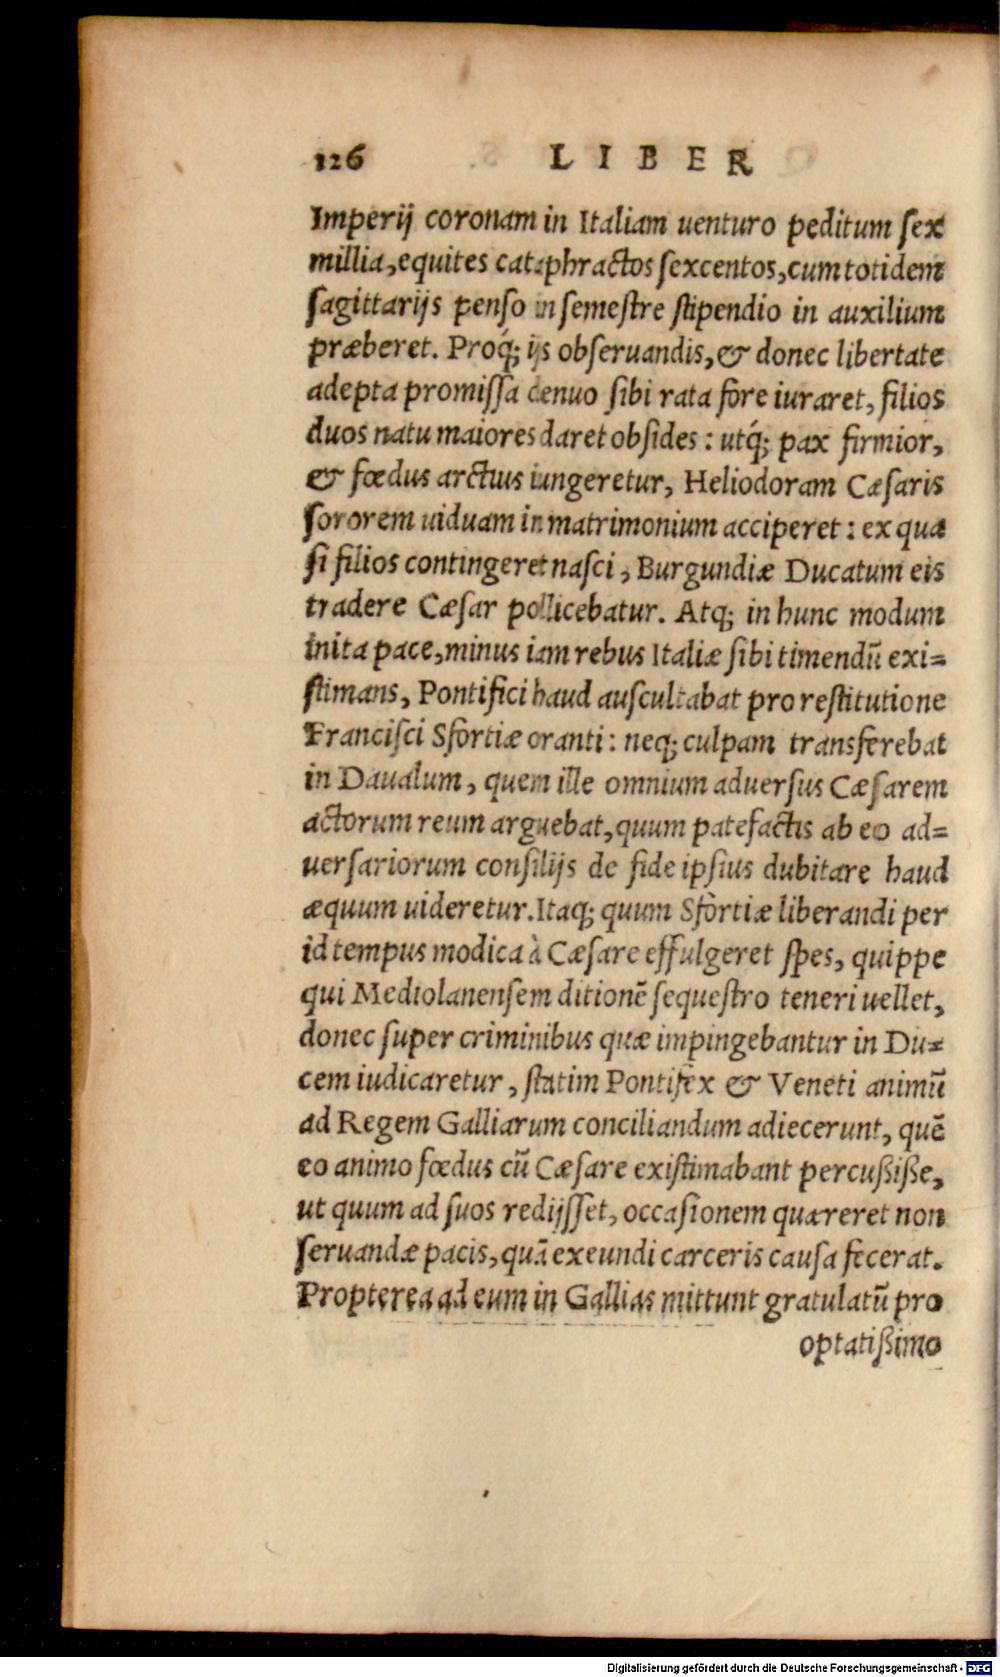 126 LIBER
Imperij coronam in Italiam uenturo peditum ſex
millia, equites cataphractos ſexcentos, cum totidem
ſagittarijs penſo in ſemeſtre ſtipendio in auxilium
præberet. Proq́; ijs obſeruandis, & donec libertate
adepta promiſſa denuo ſibi rata fore iuraret, filios
duos natu maiores daret obſides: utq́; pax firmior,
& fœdus arctius iungeretur, Heliodoram Cæſaris
ſororem uiduam in matrimonium acciperet: ex qua
ſi filios contingeret naſci, Burgundiæ Ducatum eis
tradere Cæſar pollicebatur. Atq; in hunc modum
inita pace, minus iam rebus Italiæ ſibi timendū exi=
ſtimans, Pontifici haud auſcultabat pro reſtitutione
Franciſci Sfortiæ oranti: neq; culpam transferebat
in Daualum, quem ille omnium aduerſus Cæſarem
actorum reum arguebat, quum patefactis ab eo ad=
uerſariorum conſilijs de fide ipſius dubitare haud
æquum uideretur. Itaq; quum Sfortiæ liberandi per
id tempus modica à Cæſare effulgeret ſpes, quippe
qui Mediolanenſem ditionē ſequeſtro teneri uellet,
donec ſuper criminibus quæ impingebantur in Du=
cem iudicaretur, ſtatim Pontifex & Veneti animū
ad Regem Galliarum conciliandum adiecerunt, quē
eo animo fœdus cū Cæſare exiſtimabant percußiße,
ut quum ad ſuos redijſſet, occaſionem quæreret non
ſeruandæ pacis, quā exeundi carceris cauſa fecerat.
Propterea ad eum in Gallias mittunt gratulatū pro
optatißimo
Digitalisierung gefördert durch die Deutsche Forschungsgemeinschaft - DFG